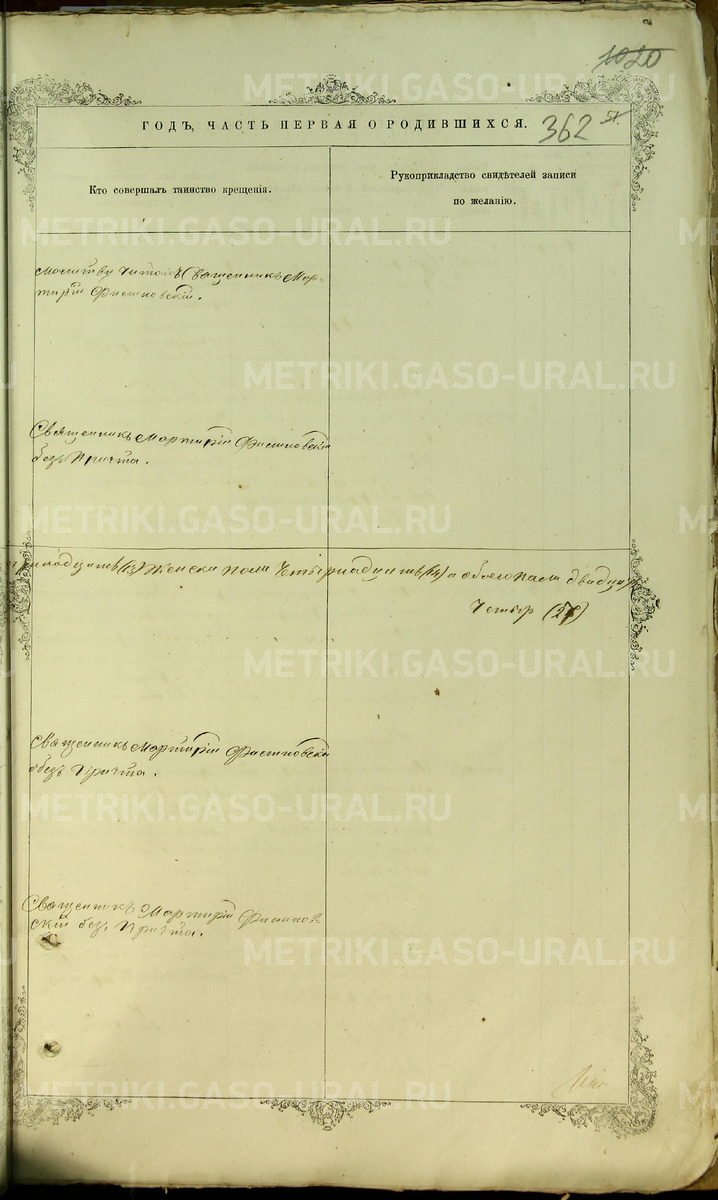 1020
ГОДЪ, ЧАСТЬ ПЕРВАЯ О РОДИВШИХСЯ.
362
Кто совершалъ таинство крещенія.
Рукоприкладство свидѣтелей записи
по желанію.
молитву читалъ Священникъ Мар-
тирій
Священникъ Мартирій
безъ Причта.
женска пола четырнадцать (14) а обоего пола двадцать
Священникъ Мартирій
безъ Причта.
Священникъ Мартирій
скій безъ Причта.
METRIKI.GASO-URAL.RU